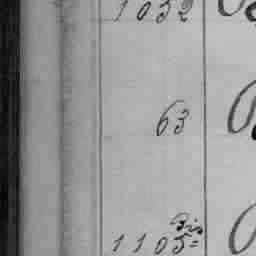 1032
63
Bis
1105=